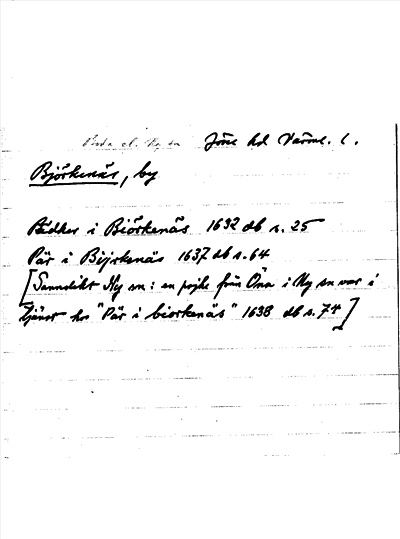 Jösse hd Värml. l.
Björkenäs, by
i Biörkenäs 1632 db s. 25
Pär i Bijrkenäs 1637 db s. 64
[Sanndikt Ny sn: en pojke från Öna i Ny sn var i
tjänst hos "Pär i biorkenäs" 1638 db s. 74]